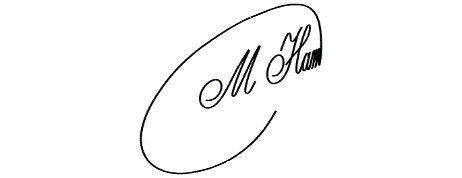 M Ham